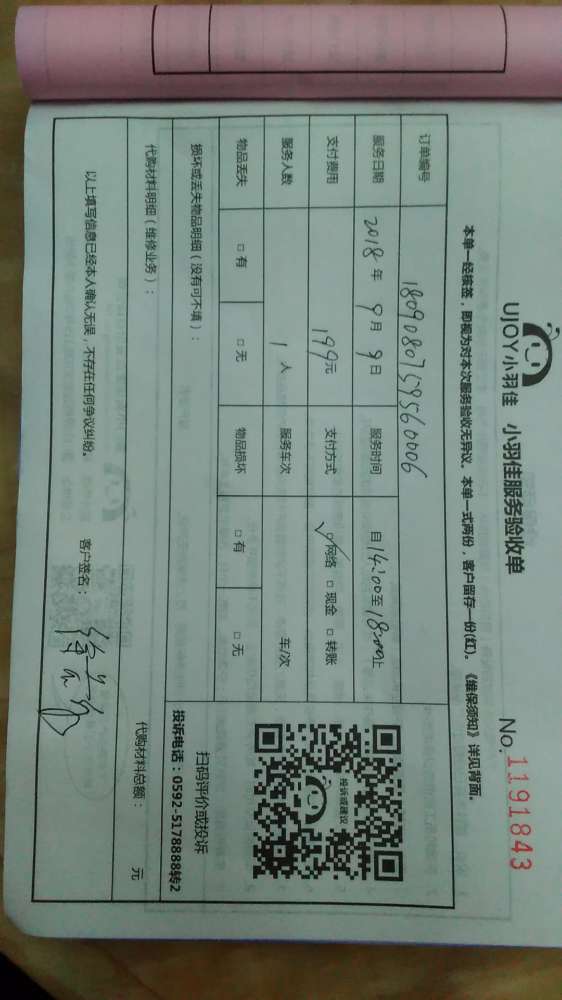 UJOY小羽佳 小羽佳服务验收单 No. 1191843
本单一经核签，即视为对本次服务验收无异议。本单一式两份，客户留存一份(红)。《维保须知》详见背面。
订单编号 1809080759560006
服务日期 2018年 9月 9日 服务时间 自14:00至18:00止
支付费用 199元 支付方式 ☑网络 □现金 □转账
服务人数 1人 服务车次 车/次
物品丢失 □有 □无 物品损坏 □有 □无
投诉或建议
扫码评价或投诉
投诉电话：0592-5178888转2
损坏或丢失物品明细（没有可不填）：
代购材料明细（维修业务）： 代购材料总额： 元
以上填写信息已经本人确认无误，不存在任何争议纠纷。 客户签名：